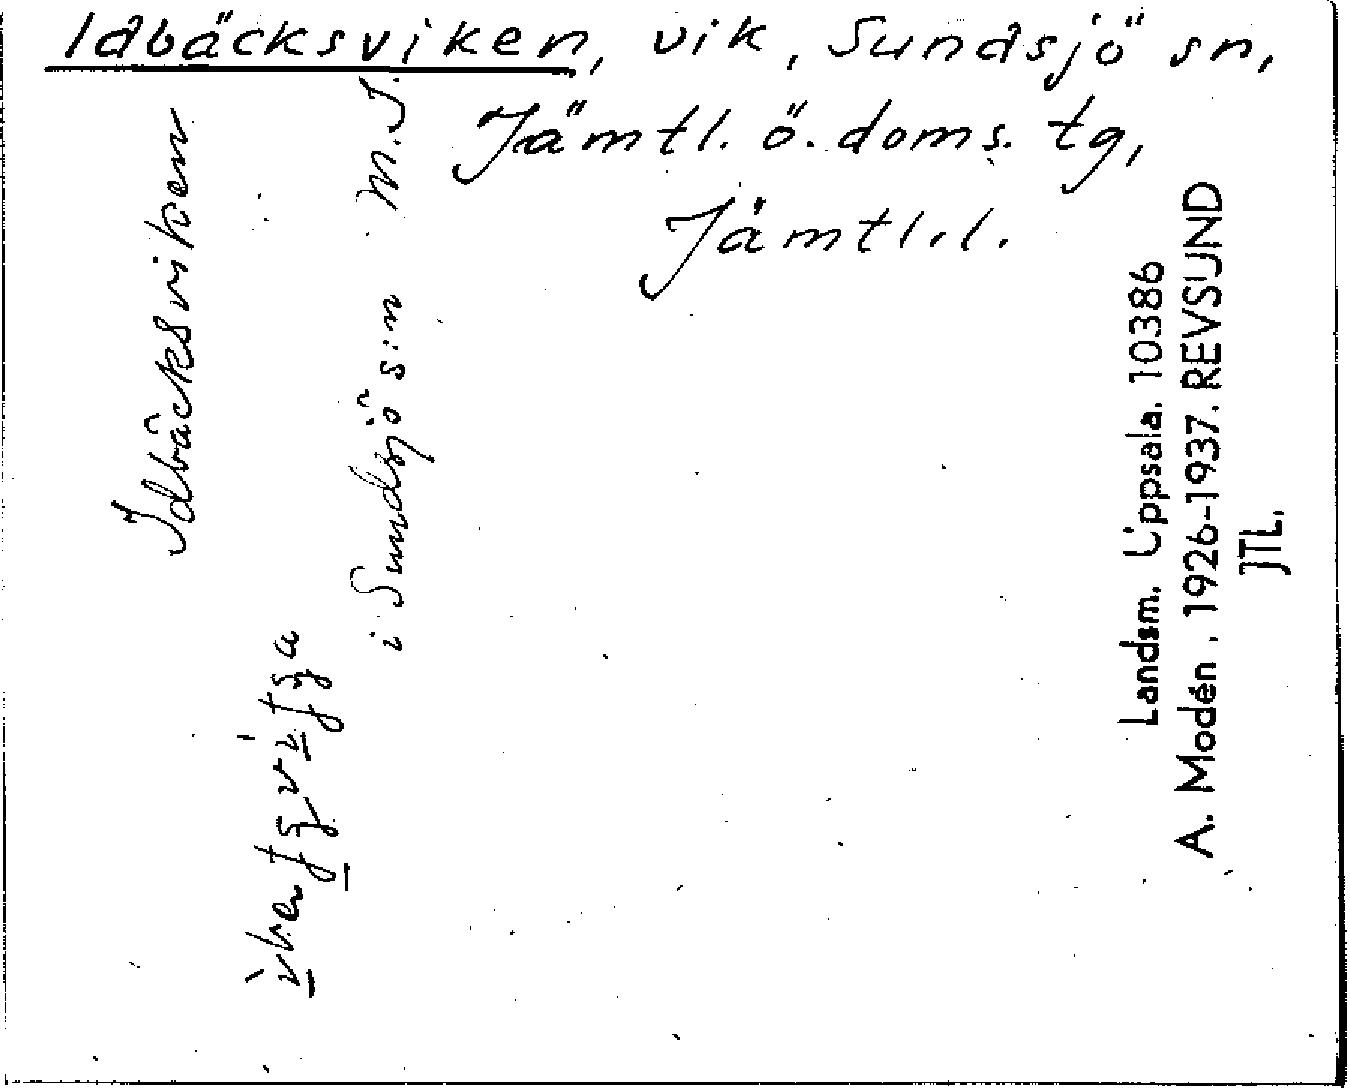 Idbäcksviken, vik, Sundsjö sn,
Jämtl. ö. doms. tg,
Jämtl.l.
Idbäcksviken
i Sundsjö s:n M.J.
Landsm. Uppsala. 10386
A. Modén. 1926-1937. REVSUND
JTL.